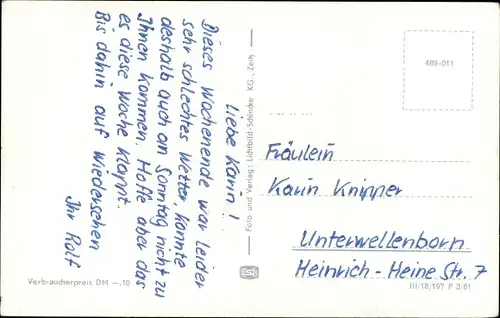 Liebe Karin!
Dieses Wochenende war leider
sehr schlechtes Wetter, konnte
deshalb auch am Sonntag nicht zu
Ihnen kommen. Hoffe aber das
es diese Woche klappt.
Bis dahin auf Wiedersehen
Ihr Rolf
Verbraucherpreis DM -,10
Foto und Verlag: Lichtbild-Schincke KG., Zeitz
489-011
Fräulein
Karin Knipper
Unterwellenborn
Heinrich-Heine Str. 7
III/18/197 P 3/61